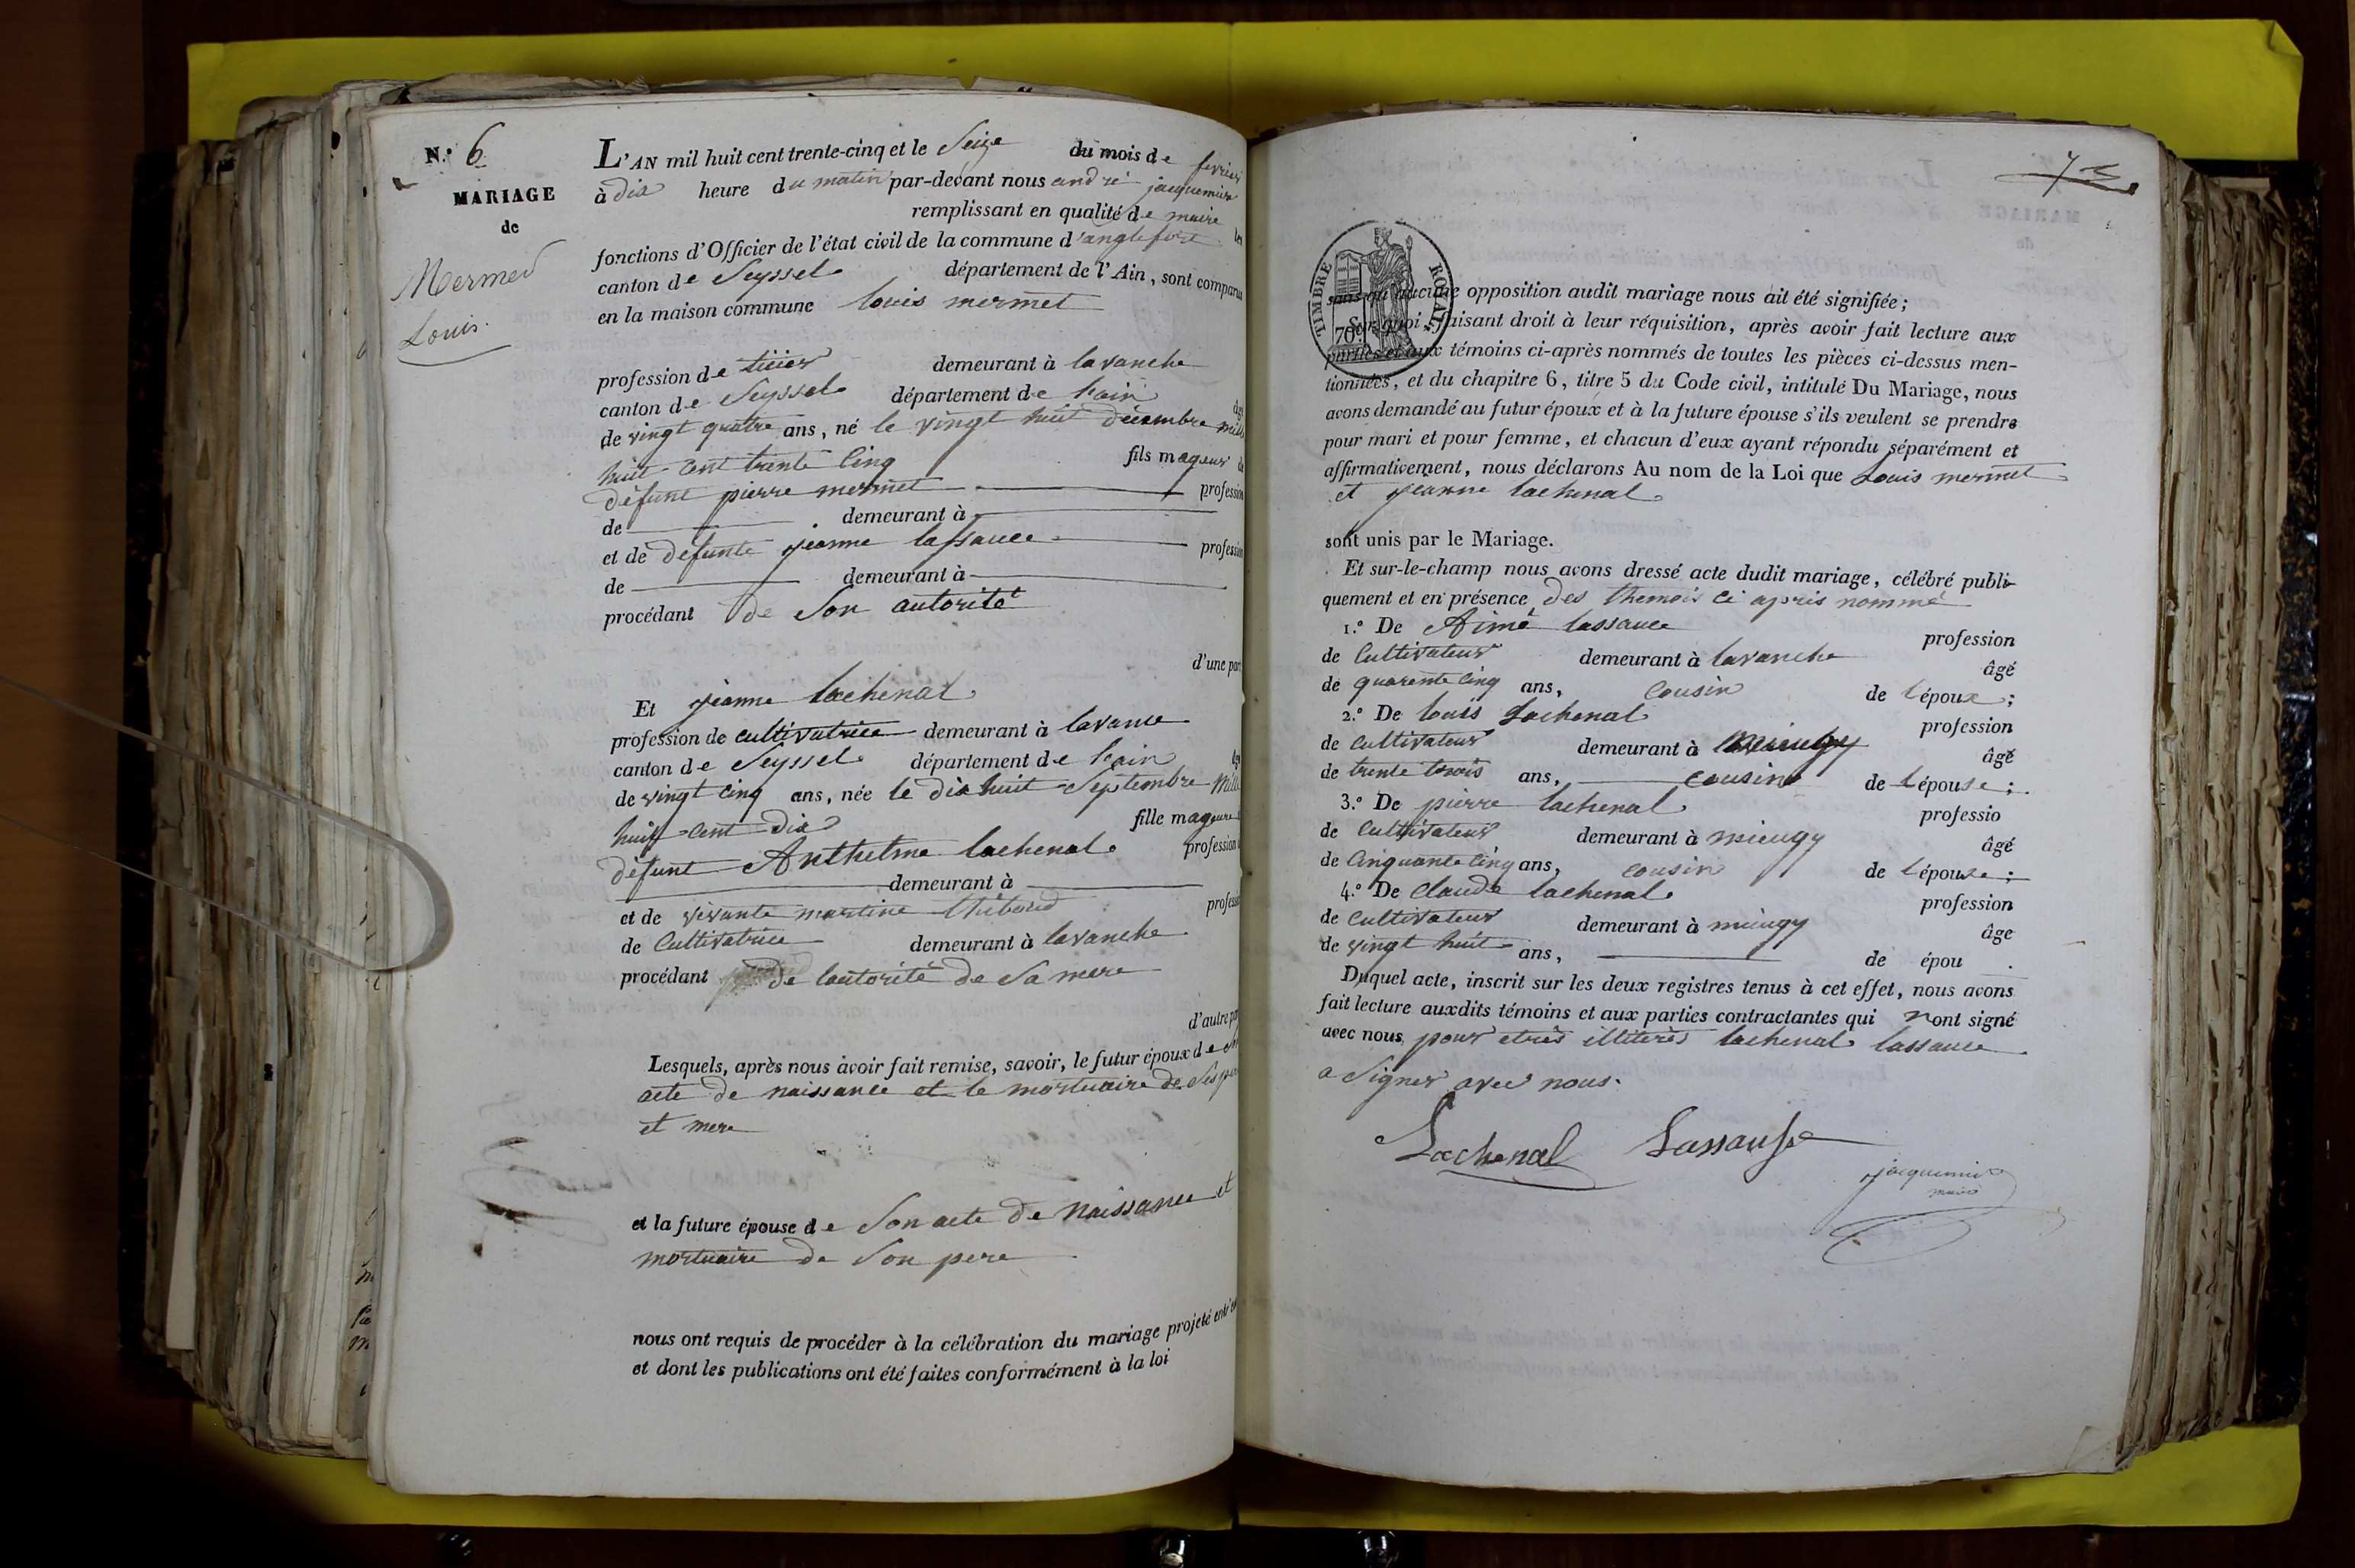 N.º 6
MARIAGE
de
Mermet
Louis.
L'AN mil huit cent trente-cinq et le Seize du mois de fevrier
à dix heure du matin par-devant nous andré jacquemier
remplissant en qualité de maire les
fonctions d'Officier de l'état civil de la commune d'anglefort
canton de Seyssel département de l'Ain, sont comparus
en la maison commune louis mermet
profession de demeurant à lavanche
canton de Seyssel département de l'ain âgé
de vingt quatre ans, né le vingt huit décembre mille
huit cent trante Cinq fils mageur de
défunt pierre mermet profession
de demeurant à
et de défunte jeanne lassauce profession
de demeurant à
procédant de Son autorité
d'une part
Et jeanne lachenal
profession de cultivatrice demeurant à lavance
canton de Seyssel département de l'ain âgé
de vingt cinq ans, née le dix huit Septembre Mille
huit cent dix fille mageure
défunt Anthelme lachenal profession
demeurant à
et de vivante martine thiboud profession
de Cultivatrice demeurant à lavanche
procédant de lautorité de Sa mere
d'autre part
Lesquels, après nous avoir fait remise, savoir, le futur époux de son
acte de naissance et le mortuaire de Ses pere
et mere
et la future épouse de Son acte de naissance et
mortuaire de Son pere
nous ont requis de procéder à la célébration du mariage projeté entr'eux
et dont les publications ont été faites conformément à la loi
TIMBRE ROYAL
70
sans qu'aucune opposition audit mariage nous ait été signifiée;
Sur quoi faisant droit à leur réquisition, après avoir fait lecture aux
parties et aux témoins ci-après nommés de toutes les pièces ci-dessus men-
tionnées, et du chapitre 6, titre 5 du Code civil, intitulé Du Mariage, nous
avons demandé au futur époux et à la future épouse s'ils veulent se prendre
pour mari et pour femme, et chacun d'eux ayant répondu séparément et
affirmativement, nous déclarons Au nom de la Loi que Louis mermet
et jeanne lachenal
sont unis par le Mariage.
Et sur-le-champ nous avons dressé acte dudit mariage, célébré publi-
quement et en présence des themois ci apris nommé
1.º De Aimé lassauce profession
de Cultivateur demeurant à lavanche âgé
de quarente cinq ans, cousin de l'époux;
2.º De louis Lachenal profession
de cultivateur demeurant à âgé
de trente trois ans, cousin de l'épouse;
3.º De pierre lachenal professio
de Cultivateur demeurant à mieugy âgé
de Cinquante Cinq ans, cousin de l'épouse;
4.º De Claude lachenal profession
de Cultivateur demeurant à mieugy âge
de vingt huit ans, de épou .
Duquel acte, inscrit sur les deux registres tenus à cet effet, nous avons
fait lecture auxdits témoins et aux parties contractantes qui n'ont signé
avec nous, pour etries illiterès lachenal lassauce
a Signer avec nous.
Lachenal Lassausse
jacquemier
maire